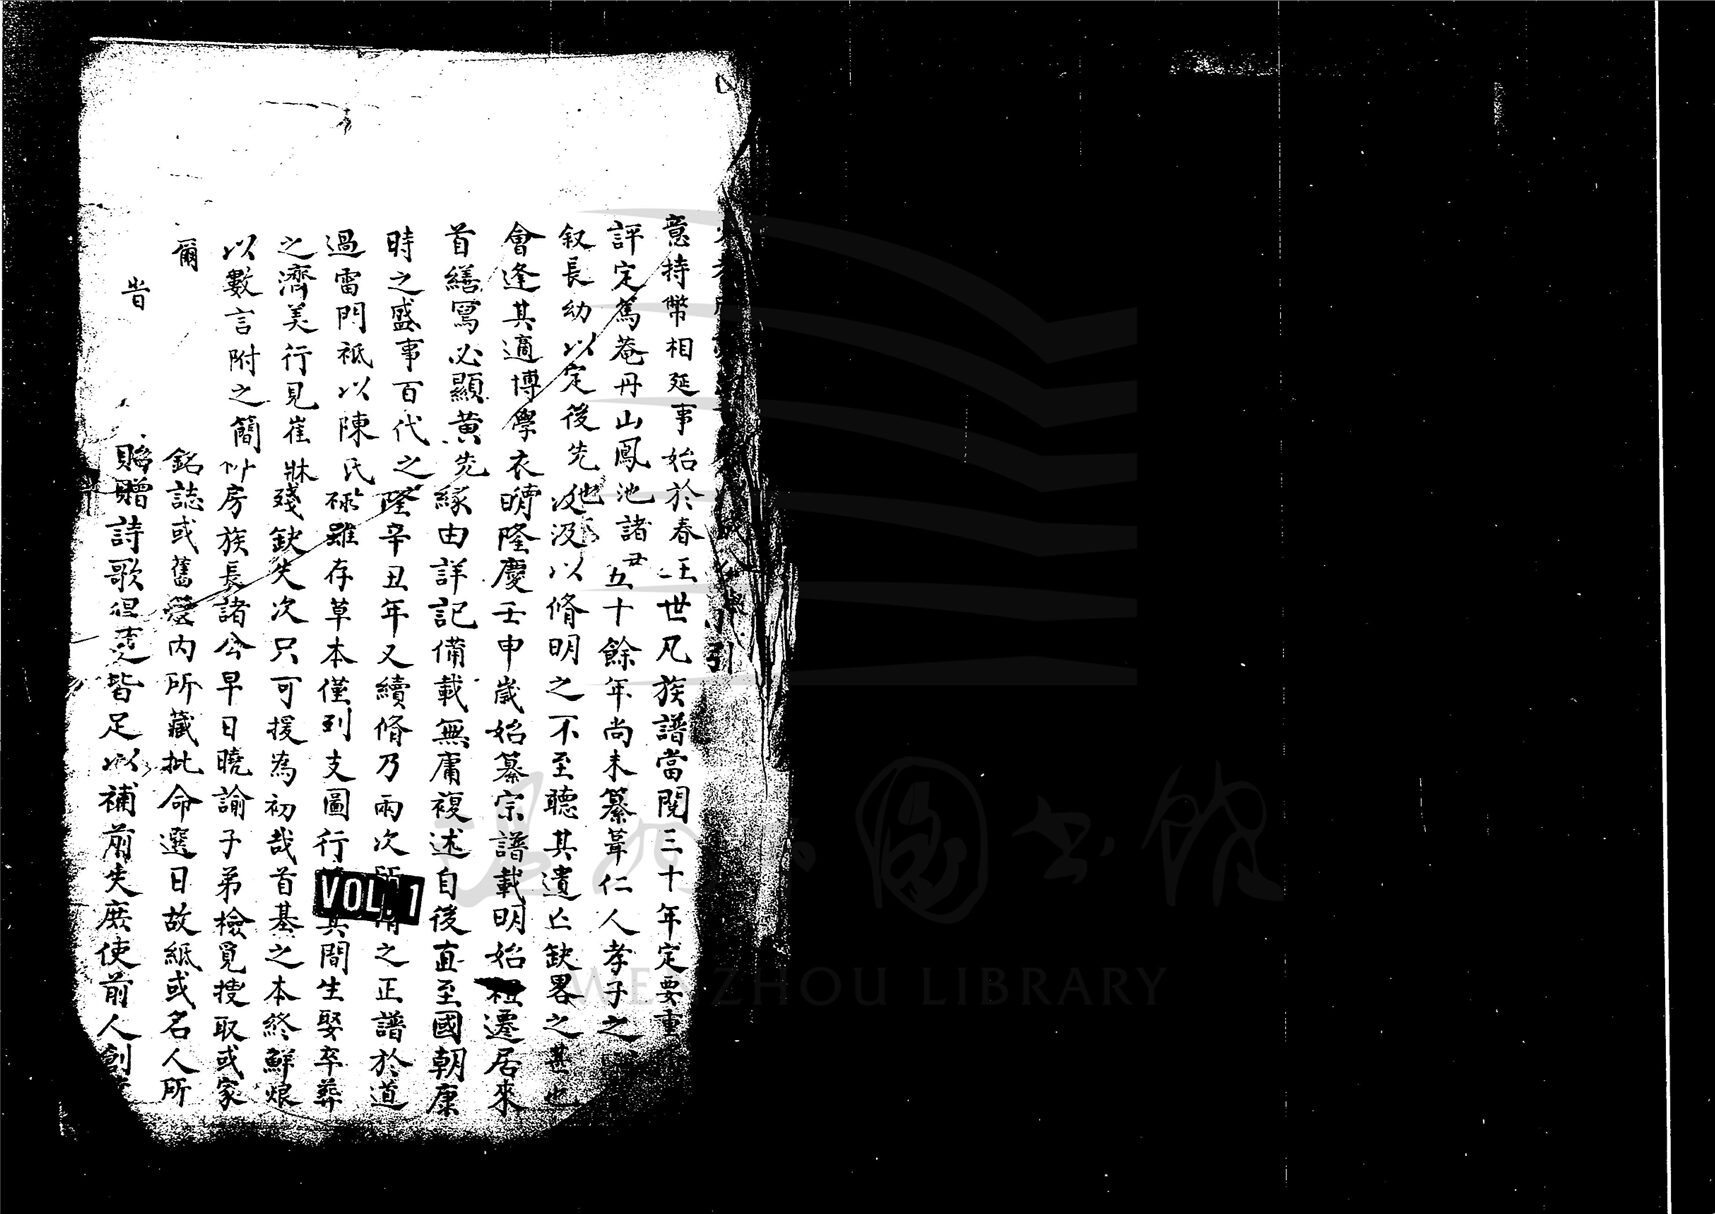 小引
意持幣相延事始於春王世凡族譜當閱三十年定要重
評定篤菴丹山鳳池諸君五十餘年尚未纂葺仁人孝子之
叙長幼以定後先他汲汲以脩明之不至聽其遺亡缺畧之甚也
會逢其適博學衣明隆慶壬申歲始纂宗譜載明始祖遷居來
首繕寫必顯黃先緣由詳記備載無庸複述自後直至國朝康
時之盛事百代之隆辛丑年又續脩乃兩次所脩之正譜於道
過雷門祗以陳氏雖存草本僅列支圖行其間生娶卒葬
之濟美行見崔殘缺失次只可援為初哉首基之本終鮮烺
以數言附之簡房族長諸公早日曉諭子弟檢覓搜取或家
爾 銘誌或舊塋內所藏批命選日故紙或名人所
旹 貽贈詩歌但皆足以補前失庶使前人創
VOL.1
溫州市圖书館
WENZHOU LIBRARY